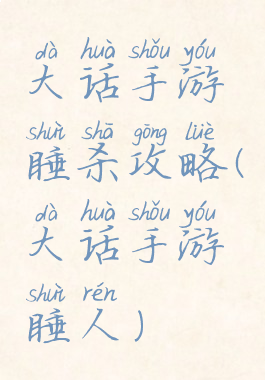 dà huà shǒu yóu
大话手游
shuì shā gōng lüè
睡杀攻略(
dà huà shǒu yóu
大话手游
shuì rén
睡人)